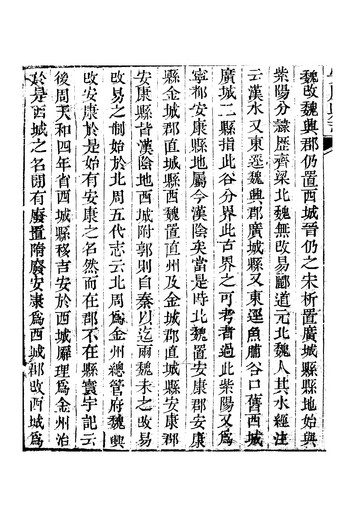 魏改魏興郡仍置西城晉仍之宋析置廣城縣縣地始與
紫陽分隸歷齊梁北魏無改易酈道元北魏人其水經注
云漢水又東逕魏興郡廣城縣又東逕魚脯谷口舊西城
廣城二縣指此谷分界此古界之可考者過此紫陽又為
寧都安康縣地屬今漢陰矣當是時北魏置安康郡安康
縣金城郡直城縣西魏置直州及金城郡直城縣安康郡
安康縣皆漢陰地西城附郭則自秦以迄兩魏未之改易
改易之制始於北周五代志云北周為金州總管府魏興
改安康於是始有安康之名然而在郡不在縣寰宇記云
後周天和四年省西城縣移吉安於西城廨理為金州治
於是西城之名閒有廢置隋廢安康為西城郡改西城為